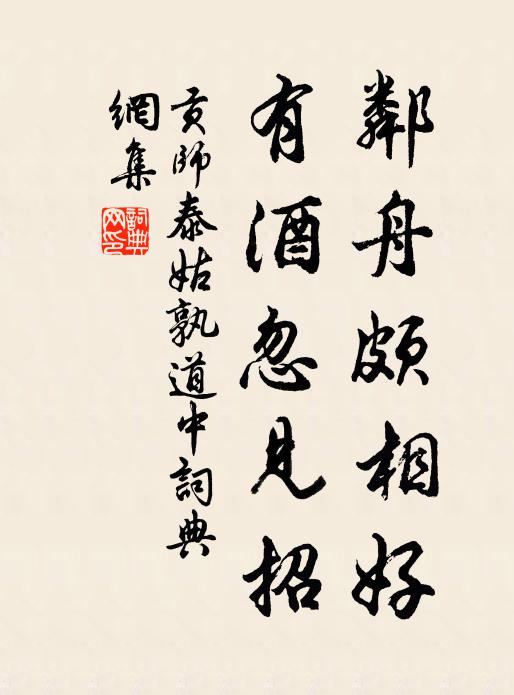 鄰舟頗相好
有酒忽見招
貢師泰姑孰道中詞典
網集
詞典網印